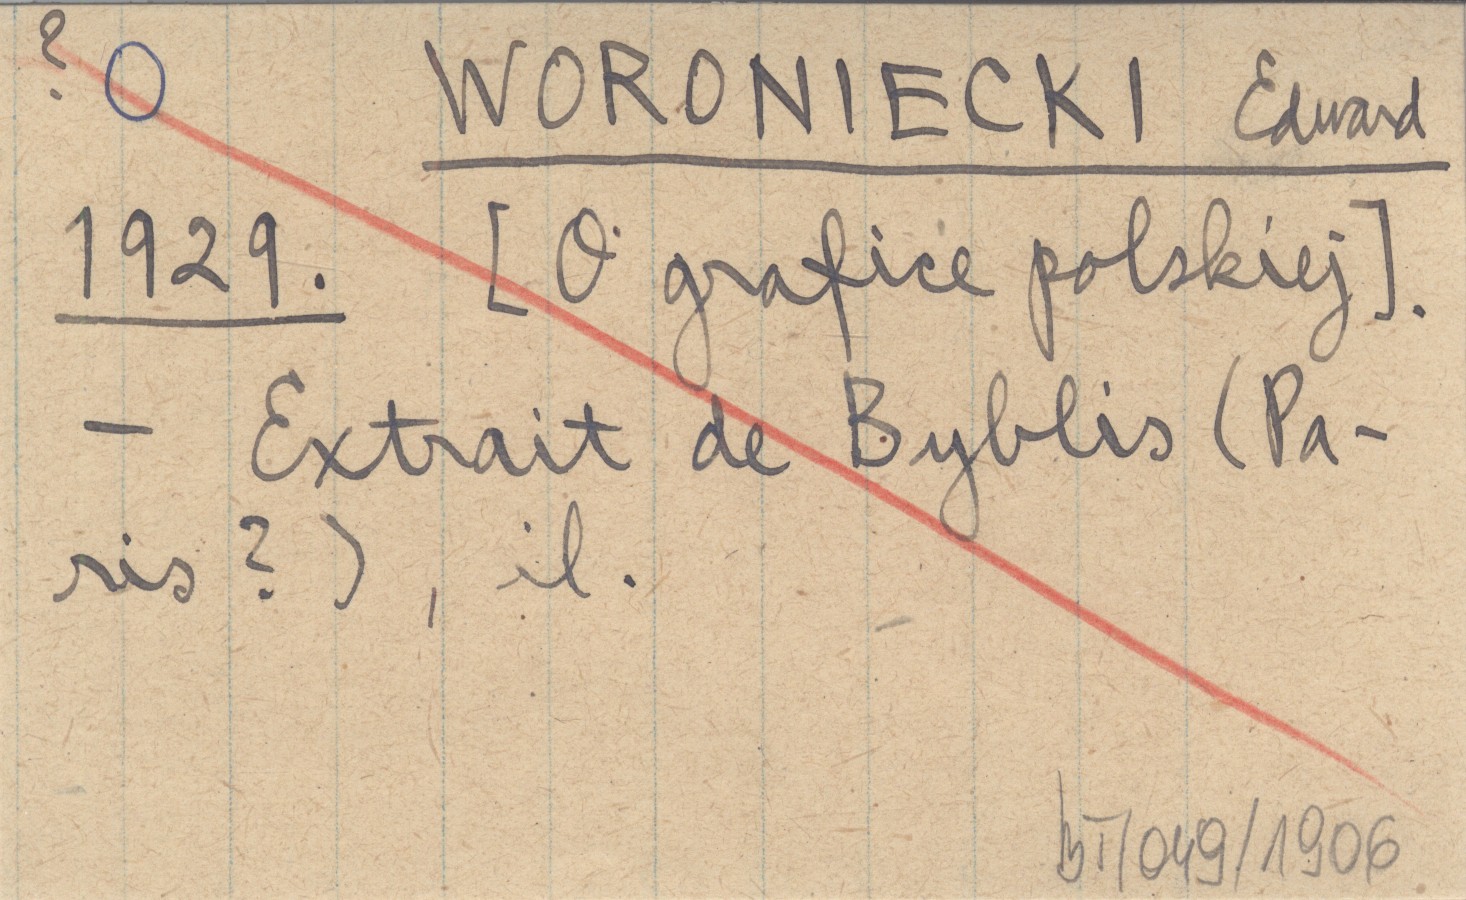 ? O WORONIECKI Edward
1929. [O grafice polskiej].
— Extrait de Byblis (Pa-
ris?), il.
bT/049/1906